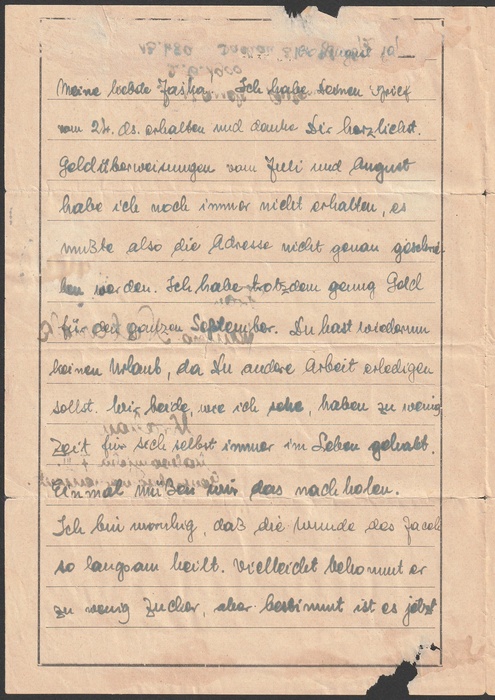 Meine liebste Jaśka. Ich habe Deinen Brief
vom 24. ds. erhalten und danke Dir herzlichst.
Geldüberweisungen vom Juli und August
habe ich noch immer nicht erhalten, es
mußte also die Adresse nicht genau geschrie-
ben werden. Ich habe trotzdem genug Geld
für den ganzen September. Du hast wiederum
keinen Urlaub, da Du andere Arbeit erledigen
sollst. Wir beide, wie ich sehe, haben zu wenig
Zeit für sich selbst immer im Leben gehabt.
Einmal mußen wir das nachholen.
Ich bin unruhig, daß die Wunde des Jacek
so langsam heilt. Vielleicht bekommt er
zu wenig Zucker, aber bestimmt ist es jetzt